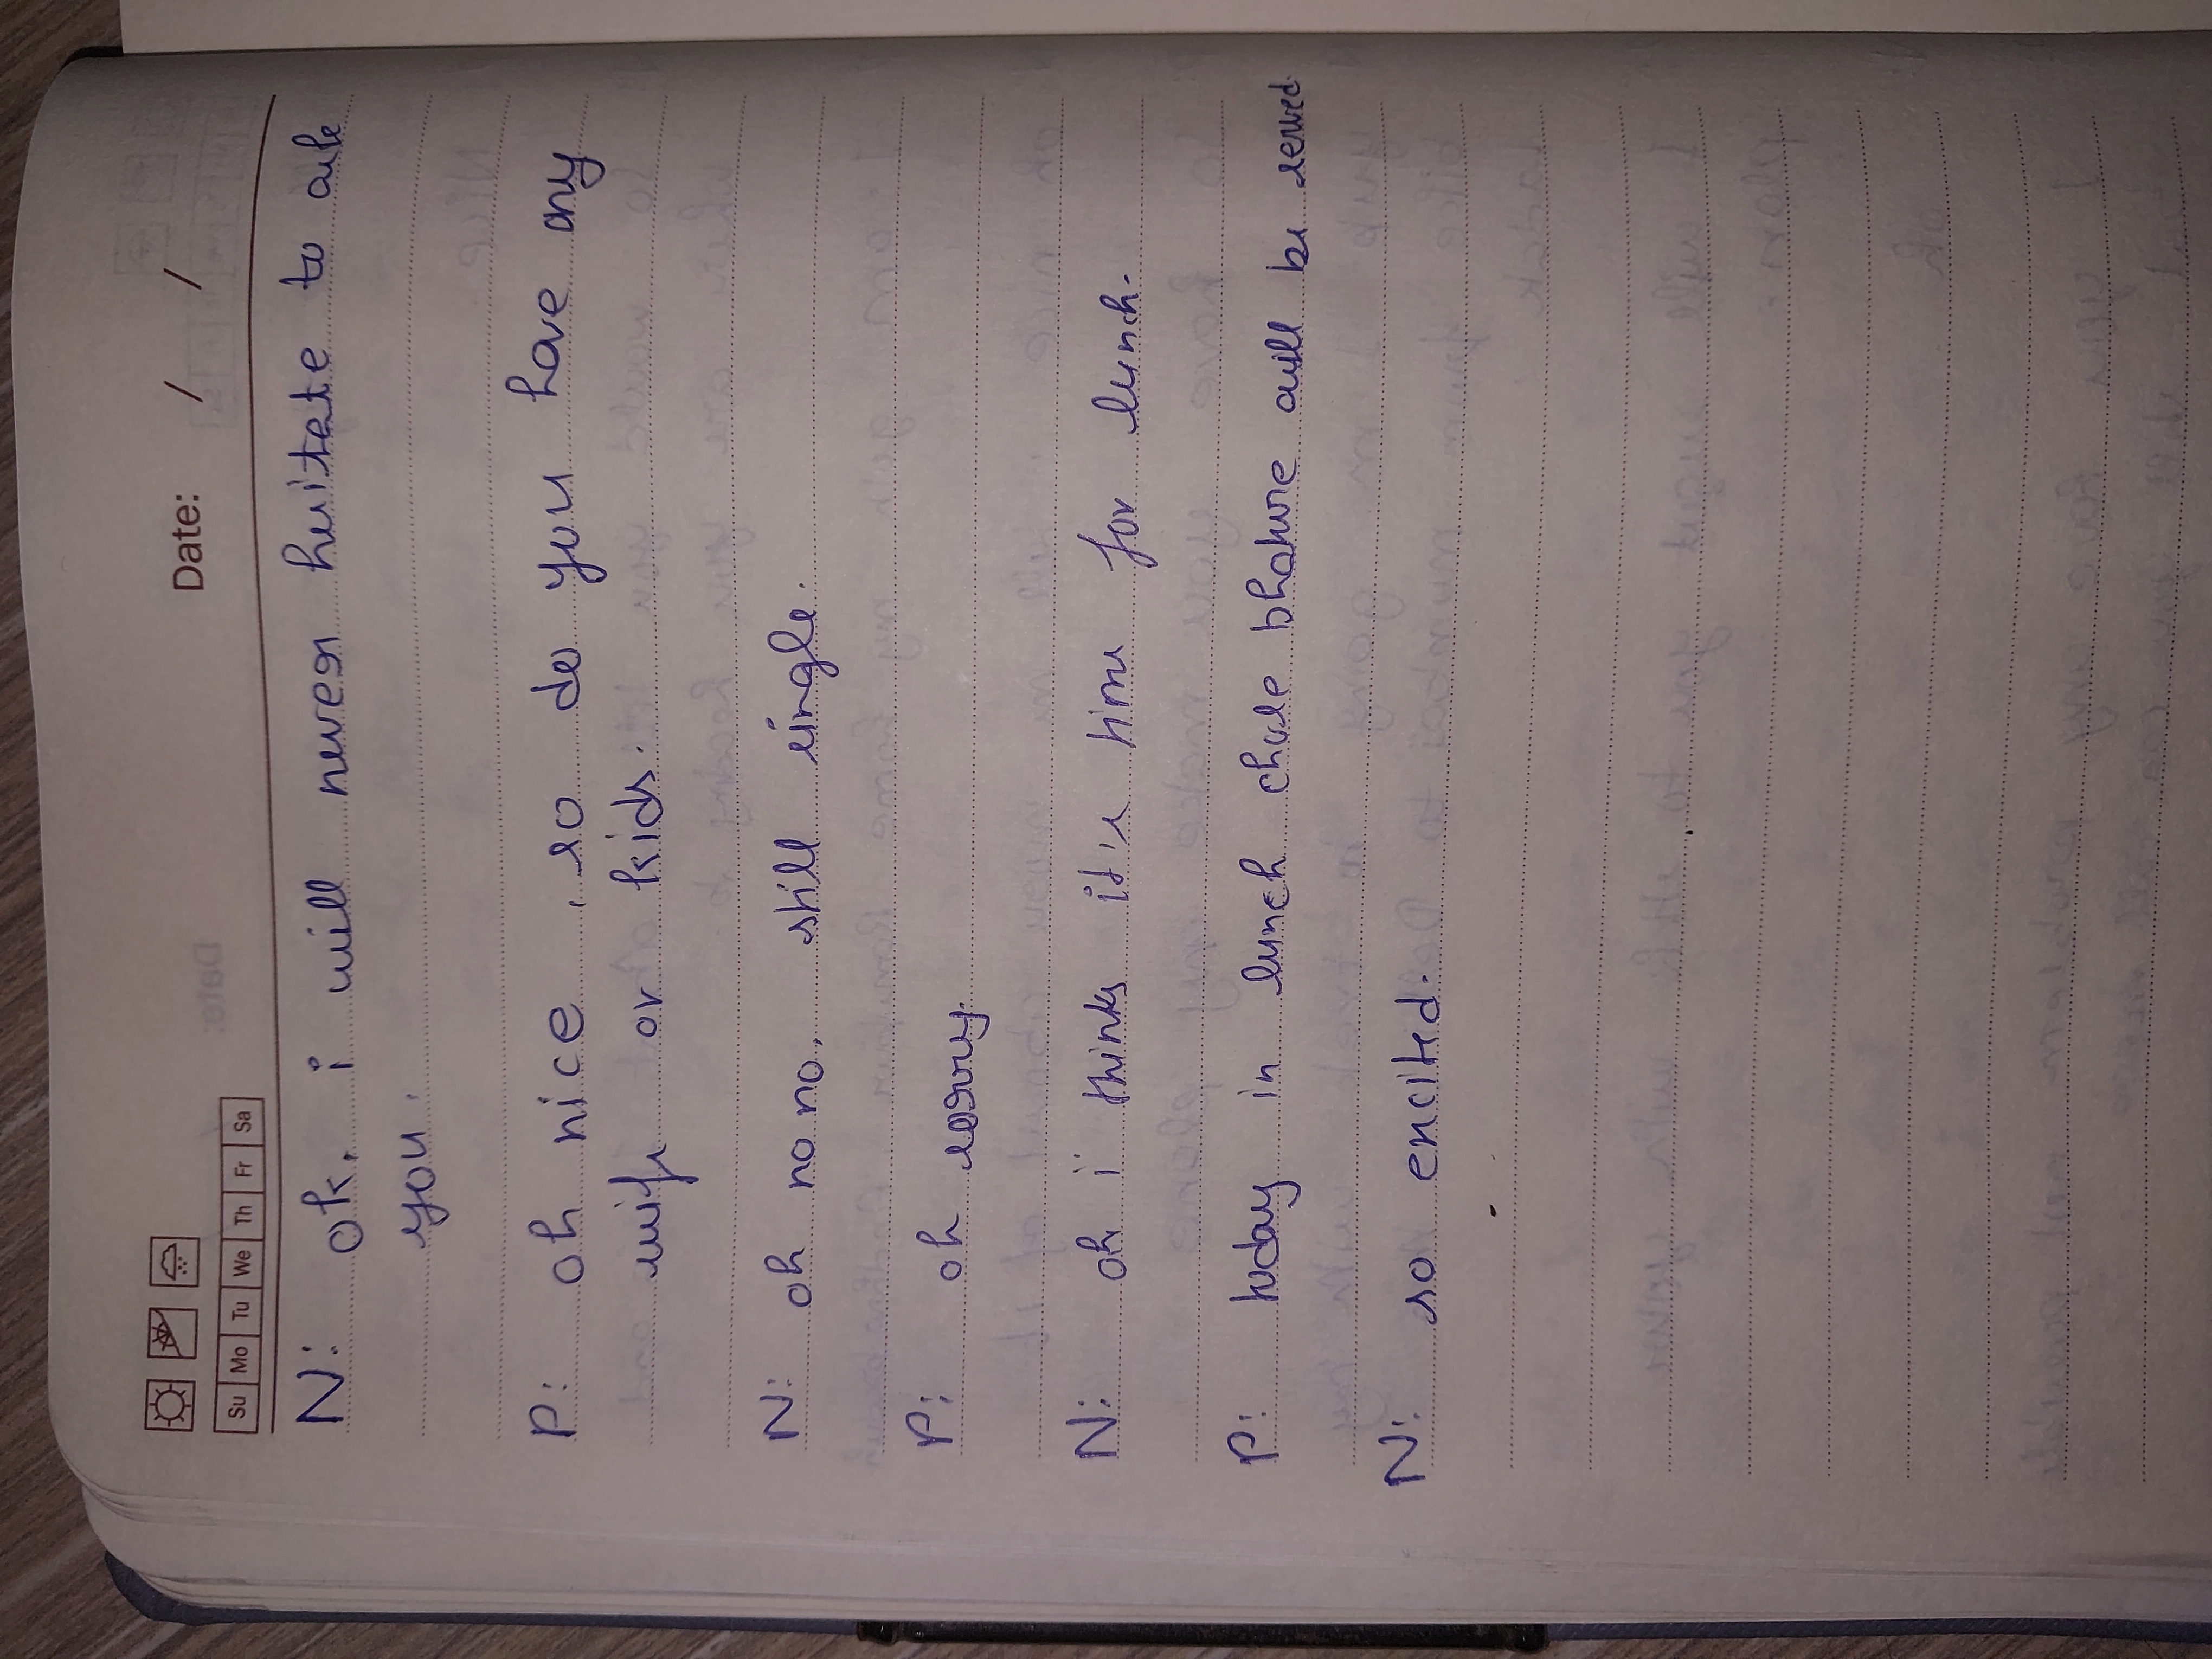 Date: / /
Su Mo Tu We Th Fr Sa
N: ok, i will never hesitete to ask
you.
P: oh nice , so do you have any
wife or kids.
N: oh no no, still single.
P: oh sorry.
N: oh i thinks it's time for lunch.
P: today in lunch chole bhature will be served.
N: so excited.